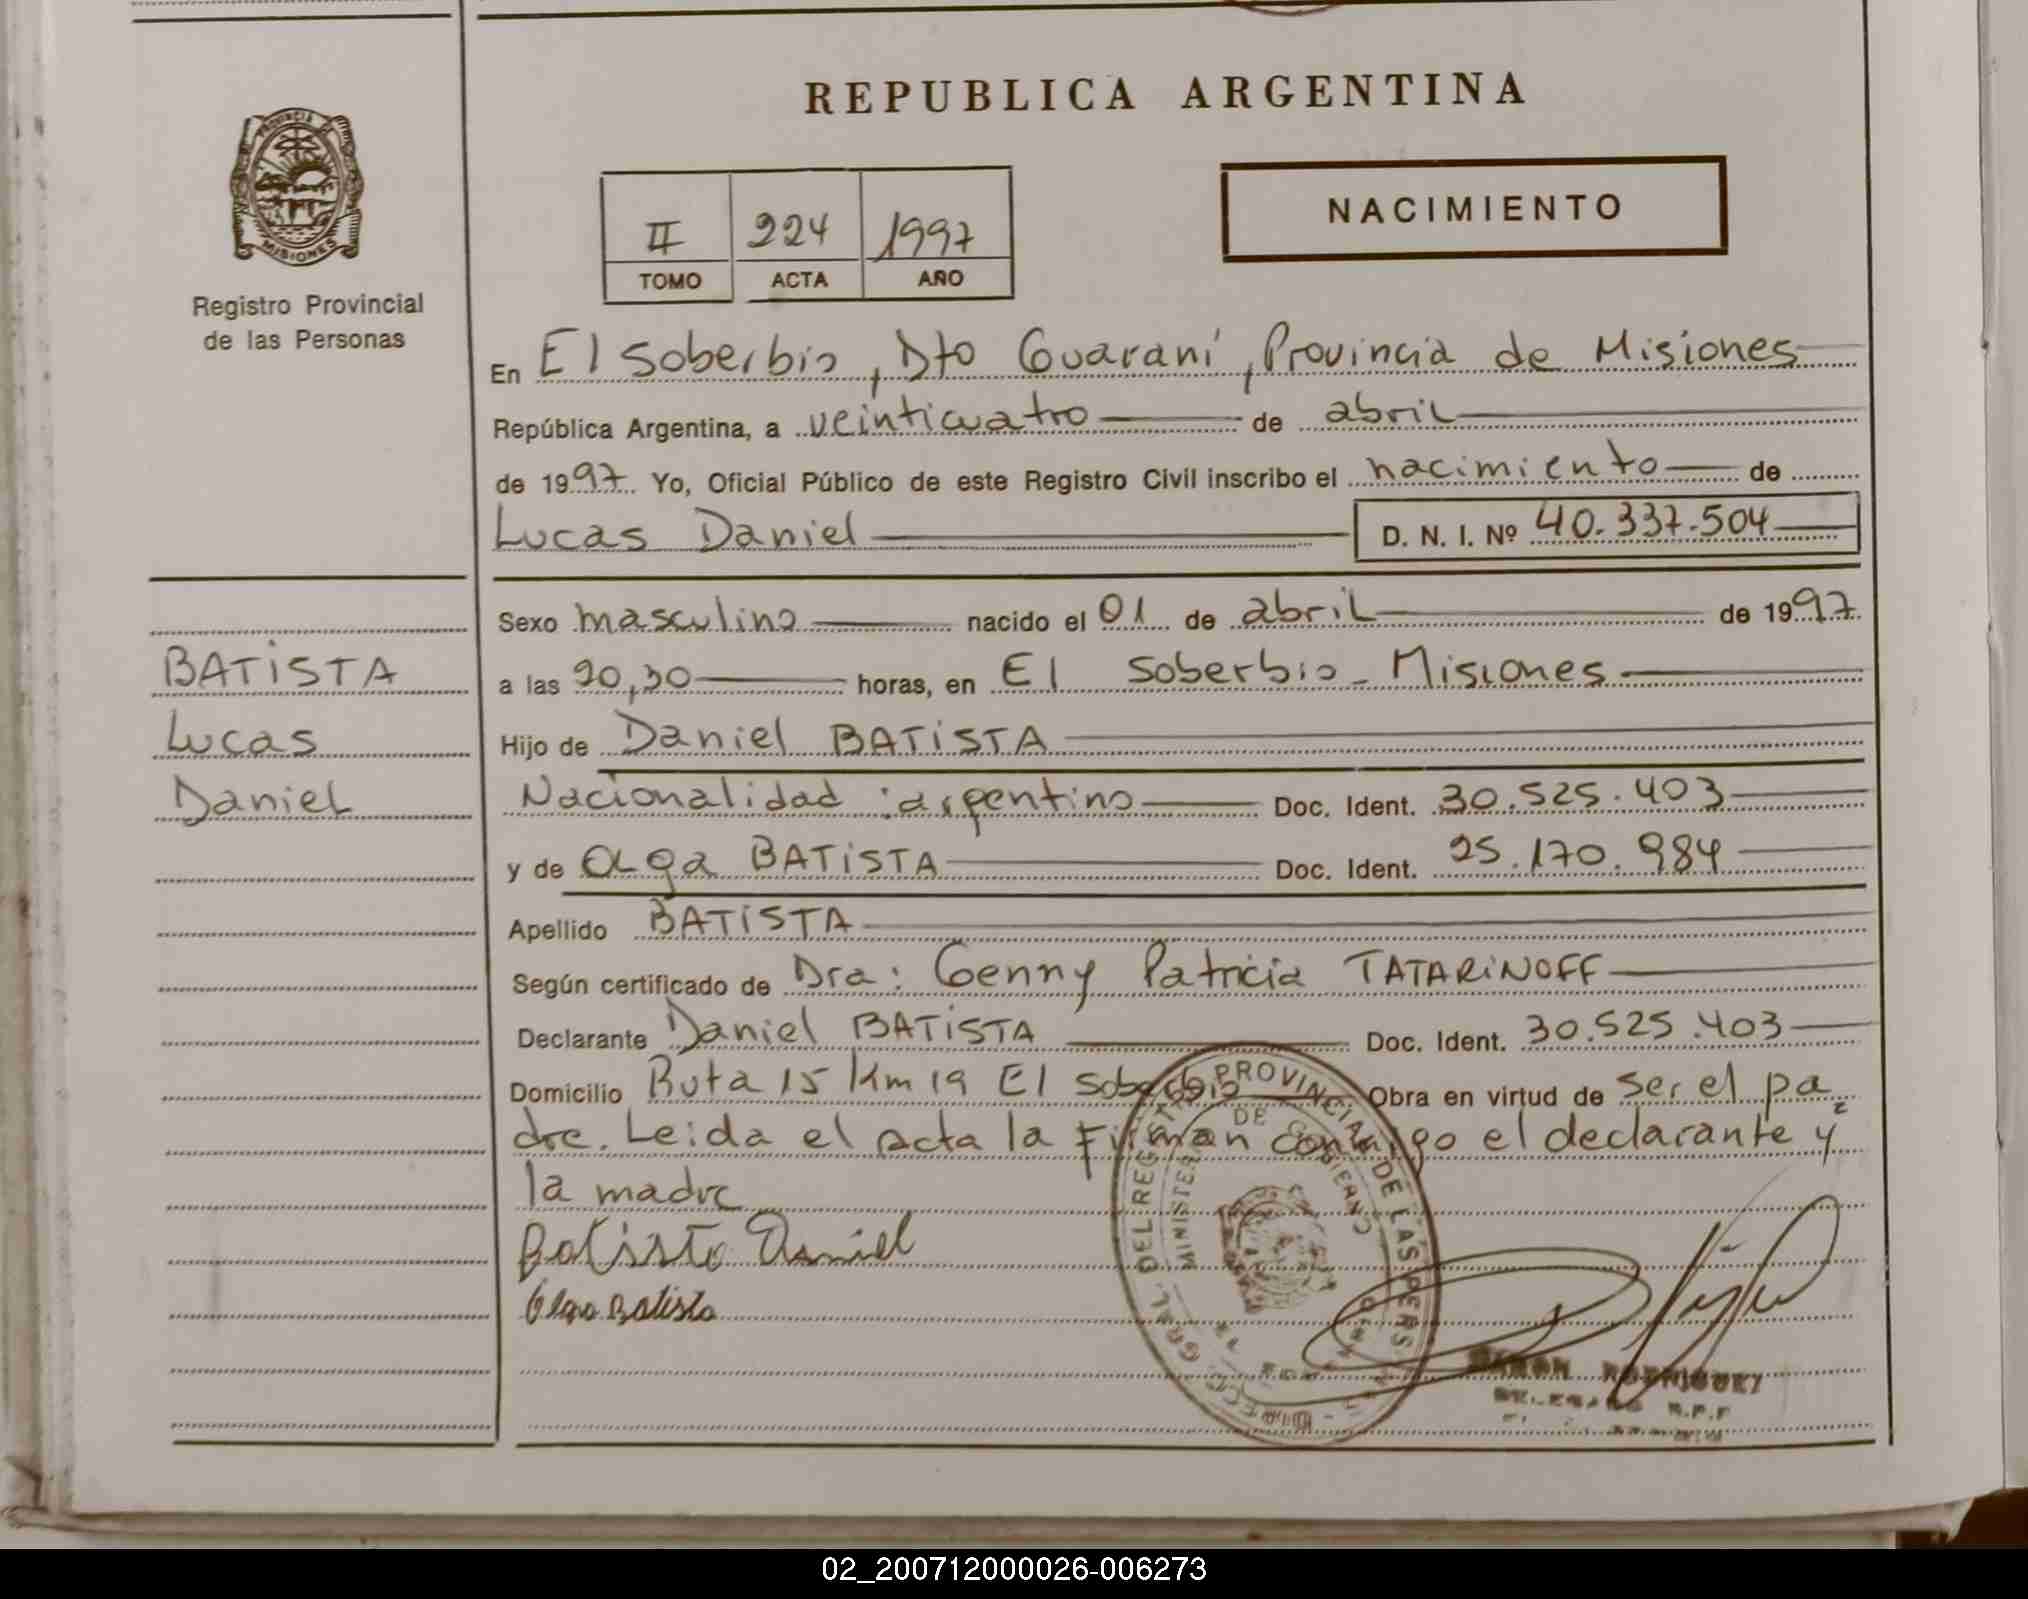 REPUBLICA ARGENTINA
PROVINCIA DE
MISIONES
Registro Provincial
de las Personas
II 224 1997
TOMO ACTA AÑO
NACIMIENTO
En El Soberbio, Dto Guaraní, Provincia de Misiones
República Argentina, a veinticuatro de abril
de 1997. Yo, Oficial Público de este Registro Civil inscribo el nacimiento de
Lucas Daniel D. N. I. Nº 40.337.504
BATISTA
Lucas
Daniel
Sexo masculino nacido el 01 de abril de 1997
a las 20,30 horas, en El Soberbio - Misiones
Hijo de Daniel BATISTA
Nacionalidad : argentino Doc. Ident. 30.525.403
y de Olga BATISTA Doc. Ident. 25.170.984
Apellido BATISTA
Según certificado de Dra: Genny Patricia TATARINOFF
Declarante Daniel BATISTA Doc. Ident. 30.525.403
Domicilio Ruta 15 Km 19 El Soberbio Obra en virtud de ser el pa
dre. Leida el acta la Firman conmigo el declarante y
la madre
Batista Daniel
Olga Batista
DEL REGISTRO PROVINCIAL DE LAS PERS
MINISTERIO DE GOBIERNO
RAMON RODRIGUEZ
02_200712000026-006273